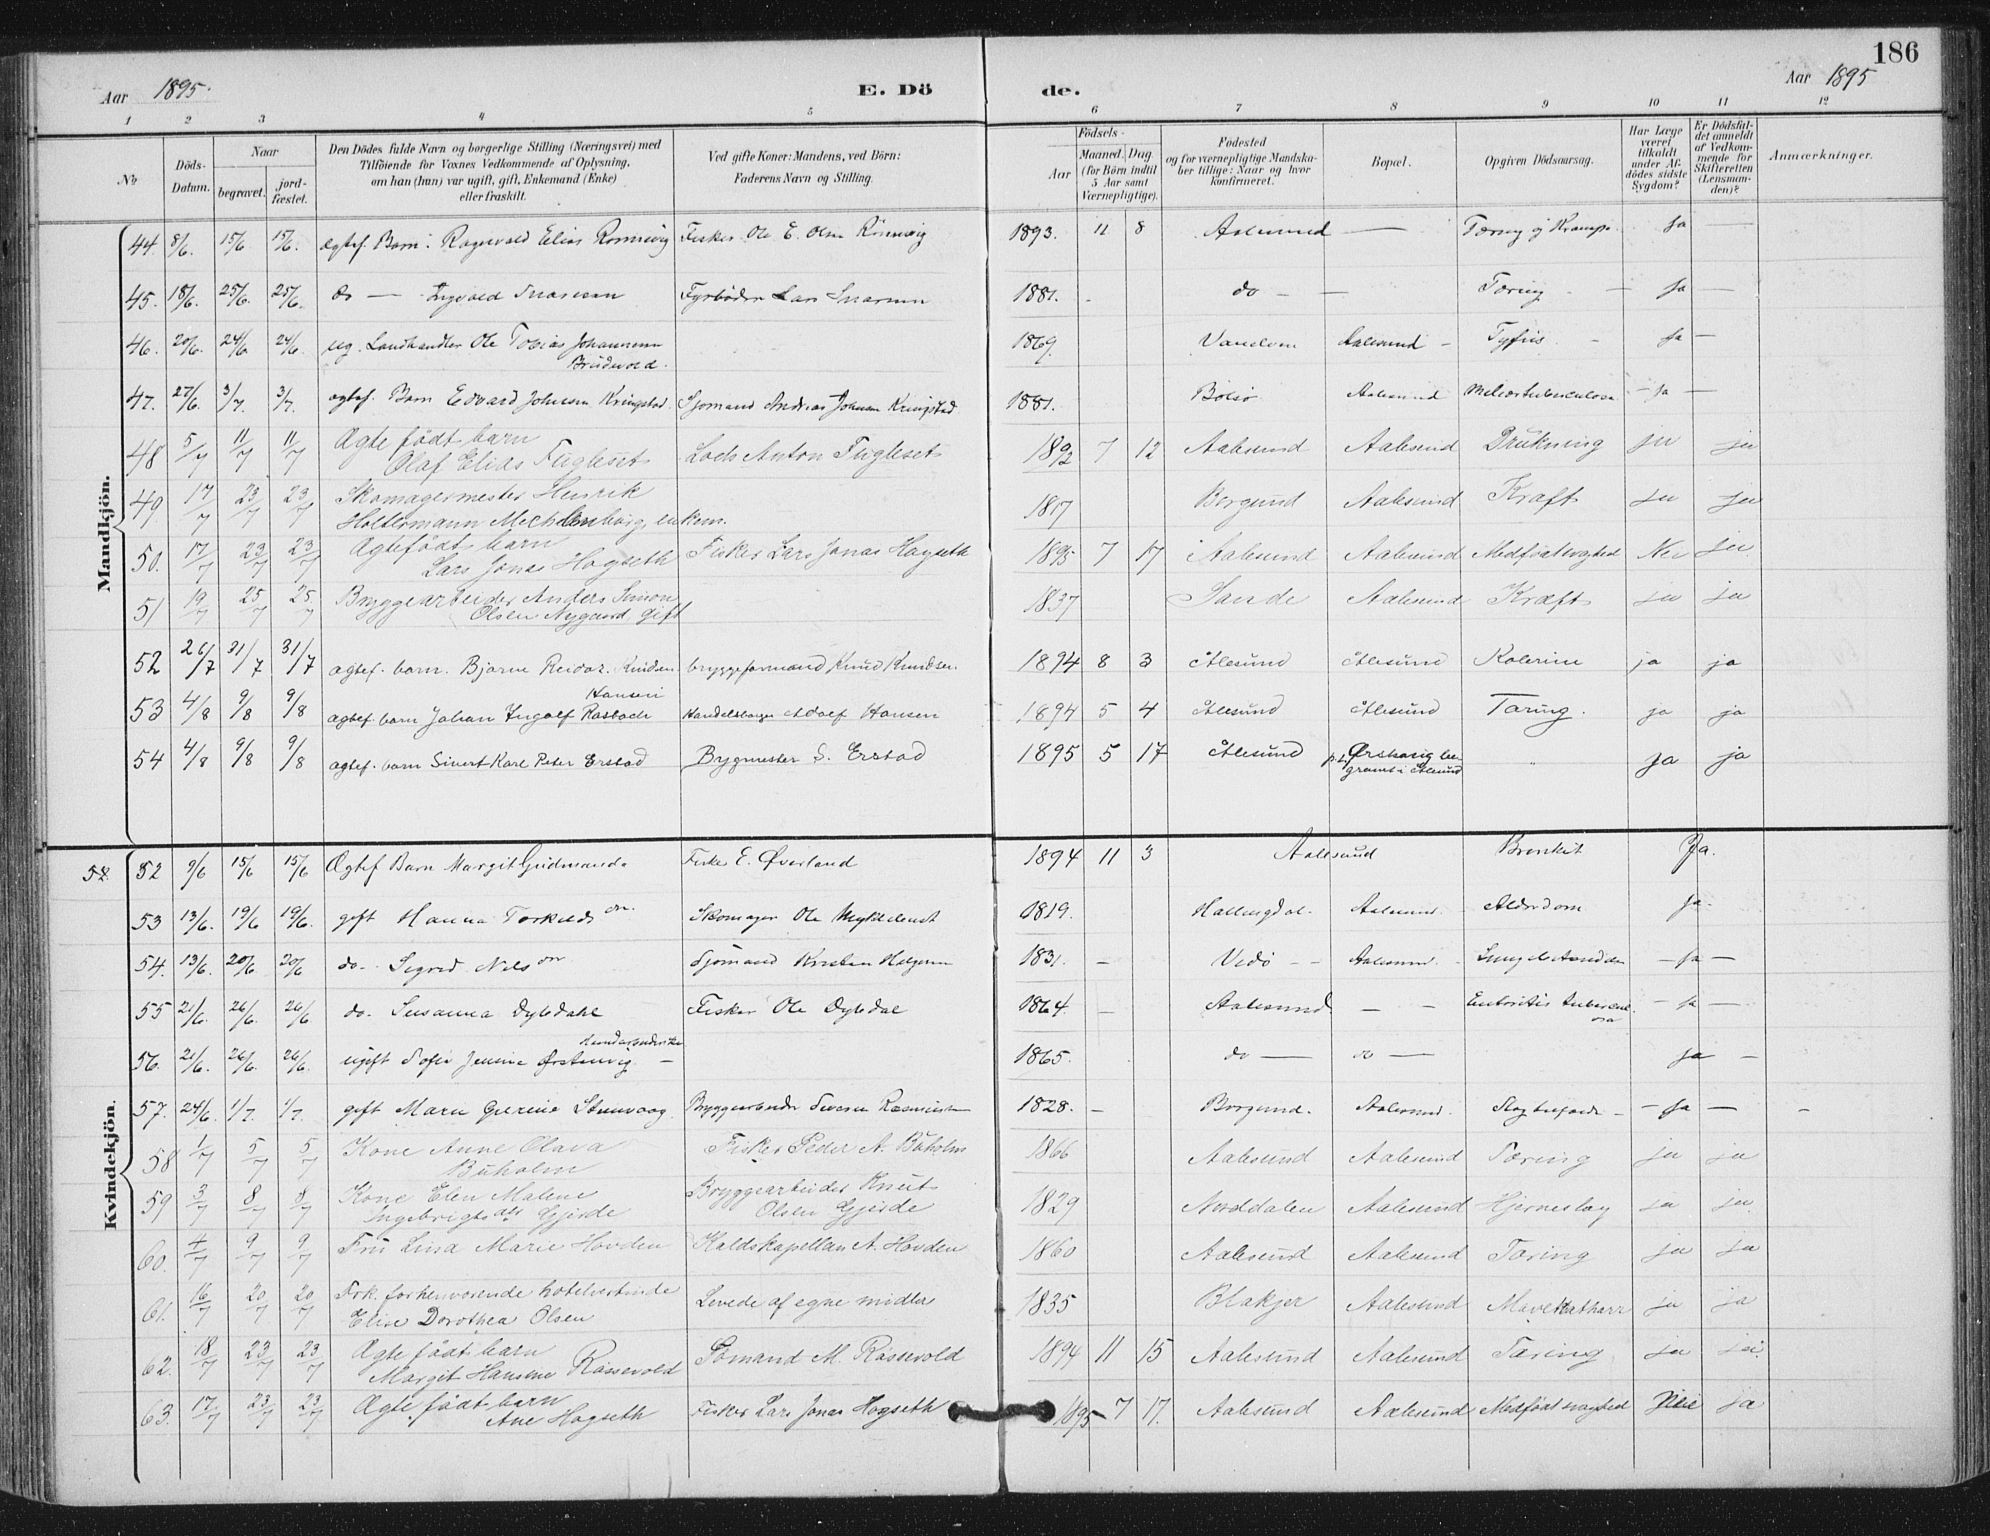 186
Aar 1895. E. Dö de. Aar 1895
1 2 3 4 5 6 7 8 9 10 11 12
No
Döds-Datum.
Naar
begravet.
jord-fæstet.
Den Dödes fulde Navn og borgerlige Stilling (Næringsvei) med
Tilföiende for Voxnes Vedkommende af Oplysning,
om han (hun) var ugift, gift, Enkemand (Enke)
eller fraskilt.
Ved gifte Koner: Mandens, ved Börn:
Faderens Navn og Stilling.
Födsels-
Aar
Maaned. Dag.
(for Börn indtil
5 Aar samt
Værnepligtige).
Födested
og for værnepligtige Mandska-
ber tillige: Naar og hvor
konfirmeret.
Bopæl.
Opgiven Dödsaarsag.
Har Læge
været
tilkaldt
under Af-
dödes sidste
Sygdom?
Er Dödsfal-
det anmeldt
af Vedkom-
mende for
Skifteretten
(Lensman-
den)?
Anmærkninger.
Mandkjön.
44. 8/6. 15/6 15/6. ægtef. Barn: Ragnvald Elias Rönnevig Fisker Ole E. Olsen Rönnevig 1893. 11 8 Aalesund — Tæring og Krampe. Ja —
45. 18/6. 25/6. 25/6. do — Ingvald Snaresen Fyrböder Lars Snaresen 1881. - do — — Tæring — Ja —
46. 20/6. 24/6 24/6. ug. Landhandler Ole Tobias Johannesen 1869. Vanelven Aalesund — Tyfus - Ja —
Brudevold.
47. 27/6. 3/7. 3/7. ægtef. Barn Edvard Johnsen Kringstad. Sjömand Andreas Johnsen Kringstad 1881. Bolsö Aalesund Meliertuberculosa — Ja —
48 5/7 11/7 11/7 Ægte födt barn
Olaf Elias Fugleset Lods Anton Fugleset 1892 7 12 Aalesund Aalesund Drukning ja ja
49 17/7 23/7 23/7 Skomagermester Henrik
Holtermann Mechlenborg, enkem. 1817 Borgund Aalesund Kræft ja ja
50. 17/7 23/7 23/7 Ægtefödt barn
Lars Jonas Hogseth Fisker Lars Jonas Hogseth 1895 7 17 Aalesund Aalesund Medfödt svaghed Nei ja
51 19/7 25/7 25/7 Bryggearbeider Anders Simon
Olsen Nygaard gift 1837 Sande Aalesund Kræft ja ja
52 26/7 31/7 31/7 ægtef. barn. Bjarne Reidar. Knudsen bryggeformand Knud Knudsen. 1894 8 3 Ålesund Ålesund Kolerine ja ja
Hansen
53 4/8 9/8 9/8 ægtef. barn Johan Ingolf Rasbach Handelsborger Adolf Hansen 1894 5 4 Ålesund Ålesund Tæring. ja ja
54 4/8 9/8 9/8 ægtef. barn Sivert Karl Peter Erstad Bygmester S. Erstad 1895 5 17 Ålesund p.t. Ørskoug be-
gravet i Ålesund " ja ja
Kvindekjön.
52. 52 9/6 15/6 15/6 Ægtef Barn Margit Gudmunda Fisker E. Øverland 1894 11 3 Aalesund Bronkit Ja.
53 13/6. 19/6 19/6. gift Hanna Torkilds dr. Skomager Ole Myklebust 1819. Hallingdal. Aalesund. Alderdom Ja.
54. 13/6. 20/6 20/6 do. Sigrid Nils dr. Sjömand Kristen Helgesen 1831. — Vedö — Aalesund. Lungebetændelse — Ja —
55 21/6. 26/6. 26/6 do. Susanna Dybdahl Fisker Ole Dybdal 1864. — Aalesund — — Enteritis tubercul-
osa — Ja —
56. 21/6. 26/6. 26/6. ugift Sofie Jensine Ørstenvig. — 1865. do — do — ja —
57. 24/6. 1/7. 1/7. gift Marie Gurine Steinvaag Bryggearbeider Severin Rasmussen 1828. — Borgund. Aalesund. Slagtilfælde — Ja — -
58 1/7 5/7 5/7 Kone Anne Olava
Buholm Fisker Peder A. Buholm 1866 Aalesund Aalesund Tæring ja ja
59 3/7 8/7 8/7 Kone Elen Malene
Ingebrigtsdtr Gjerde Bryggearbeider Knut
Olsen Gjerde 1829 Norddalen Aalesund Hjerneslag ja ja
60. 4/7 9/7 9/7 Fru Lina Marie Hovden Kaldskapellan A. Hovden 1860 Aalesund Aalesund Tæring ja ja
61. 16/7 20/7 20/7 Frk. forhenværende hotelvertinde
Elise Dorothea Olsen Levede af egne midler 1835 Blakjer Aalesund Mavekatharr ja ja
62. 18/7 23/7 23/7 Ægte födt barn
Margit Hansine Rössevold Sömand M. Rössevold 1894 11 15 Aalesund Aalesund Tæring ja ja
63. 17/7 23/7 23/7 Ægte födt barn
Ane Hogseth Fisker Lars Jonas Hogseth 1895 7 17. Aalesund Aalesund Medfödt svaghed Nei ja